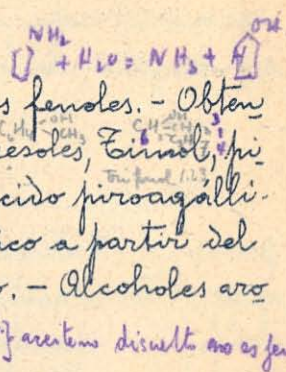 NH₂ OH
+ H₂O = NH₃ +
s fenoles. - Obten
OH CH₃
esoles, Timol, pi
Trifenol 1.2.3
cido piroagálli-
ico a partir del
o. - Alcoholes aro
aceitemo disuelto no es fe